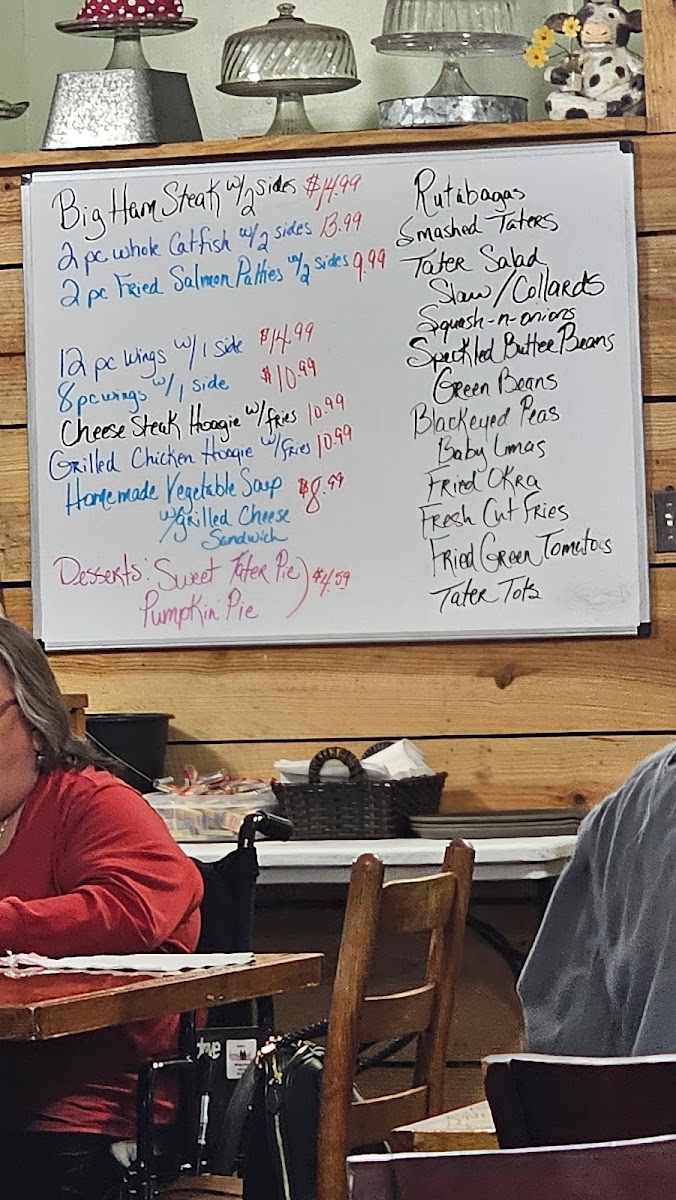 Big Ham Steak w/2 sides $14.99
2 pc whole Catfish w/2 sides 13.99
2 pc Fried Salmon Patties w/2 sides 9.99
12 pc wings w/1 side $14.99
8 pc wings w/1 side $10.99
Cheese Steak Hoagie w/fries 10.99
Grilled Chicken Hoagie w/fries 10.99
Homemade Vegetable Soup $8.99
w/grilled Cheese
Sandwich
Desserts: Sweet Tater Pie) $4.59
Pumpkin Pie
Rutabagas
Smashed Taters
Tater Salad
Slaw/Collards
Squash-n-onions
Speckled Butter Beans
Green Beans
Blackeyed Peas
Baby Limas
Fried Okra
Fresh Cut Fries
Fried Green Tomatoes
Tater Tots